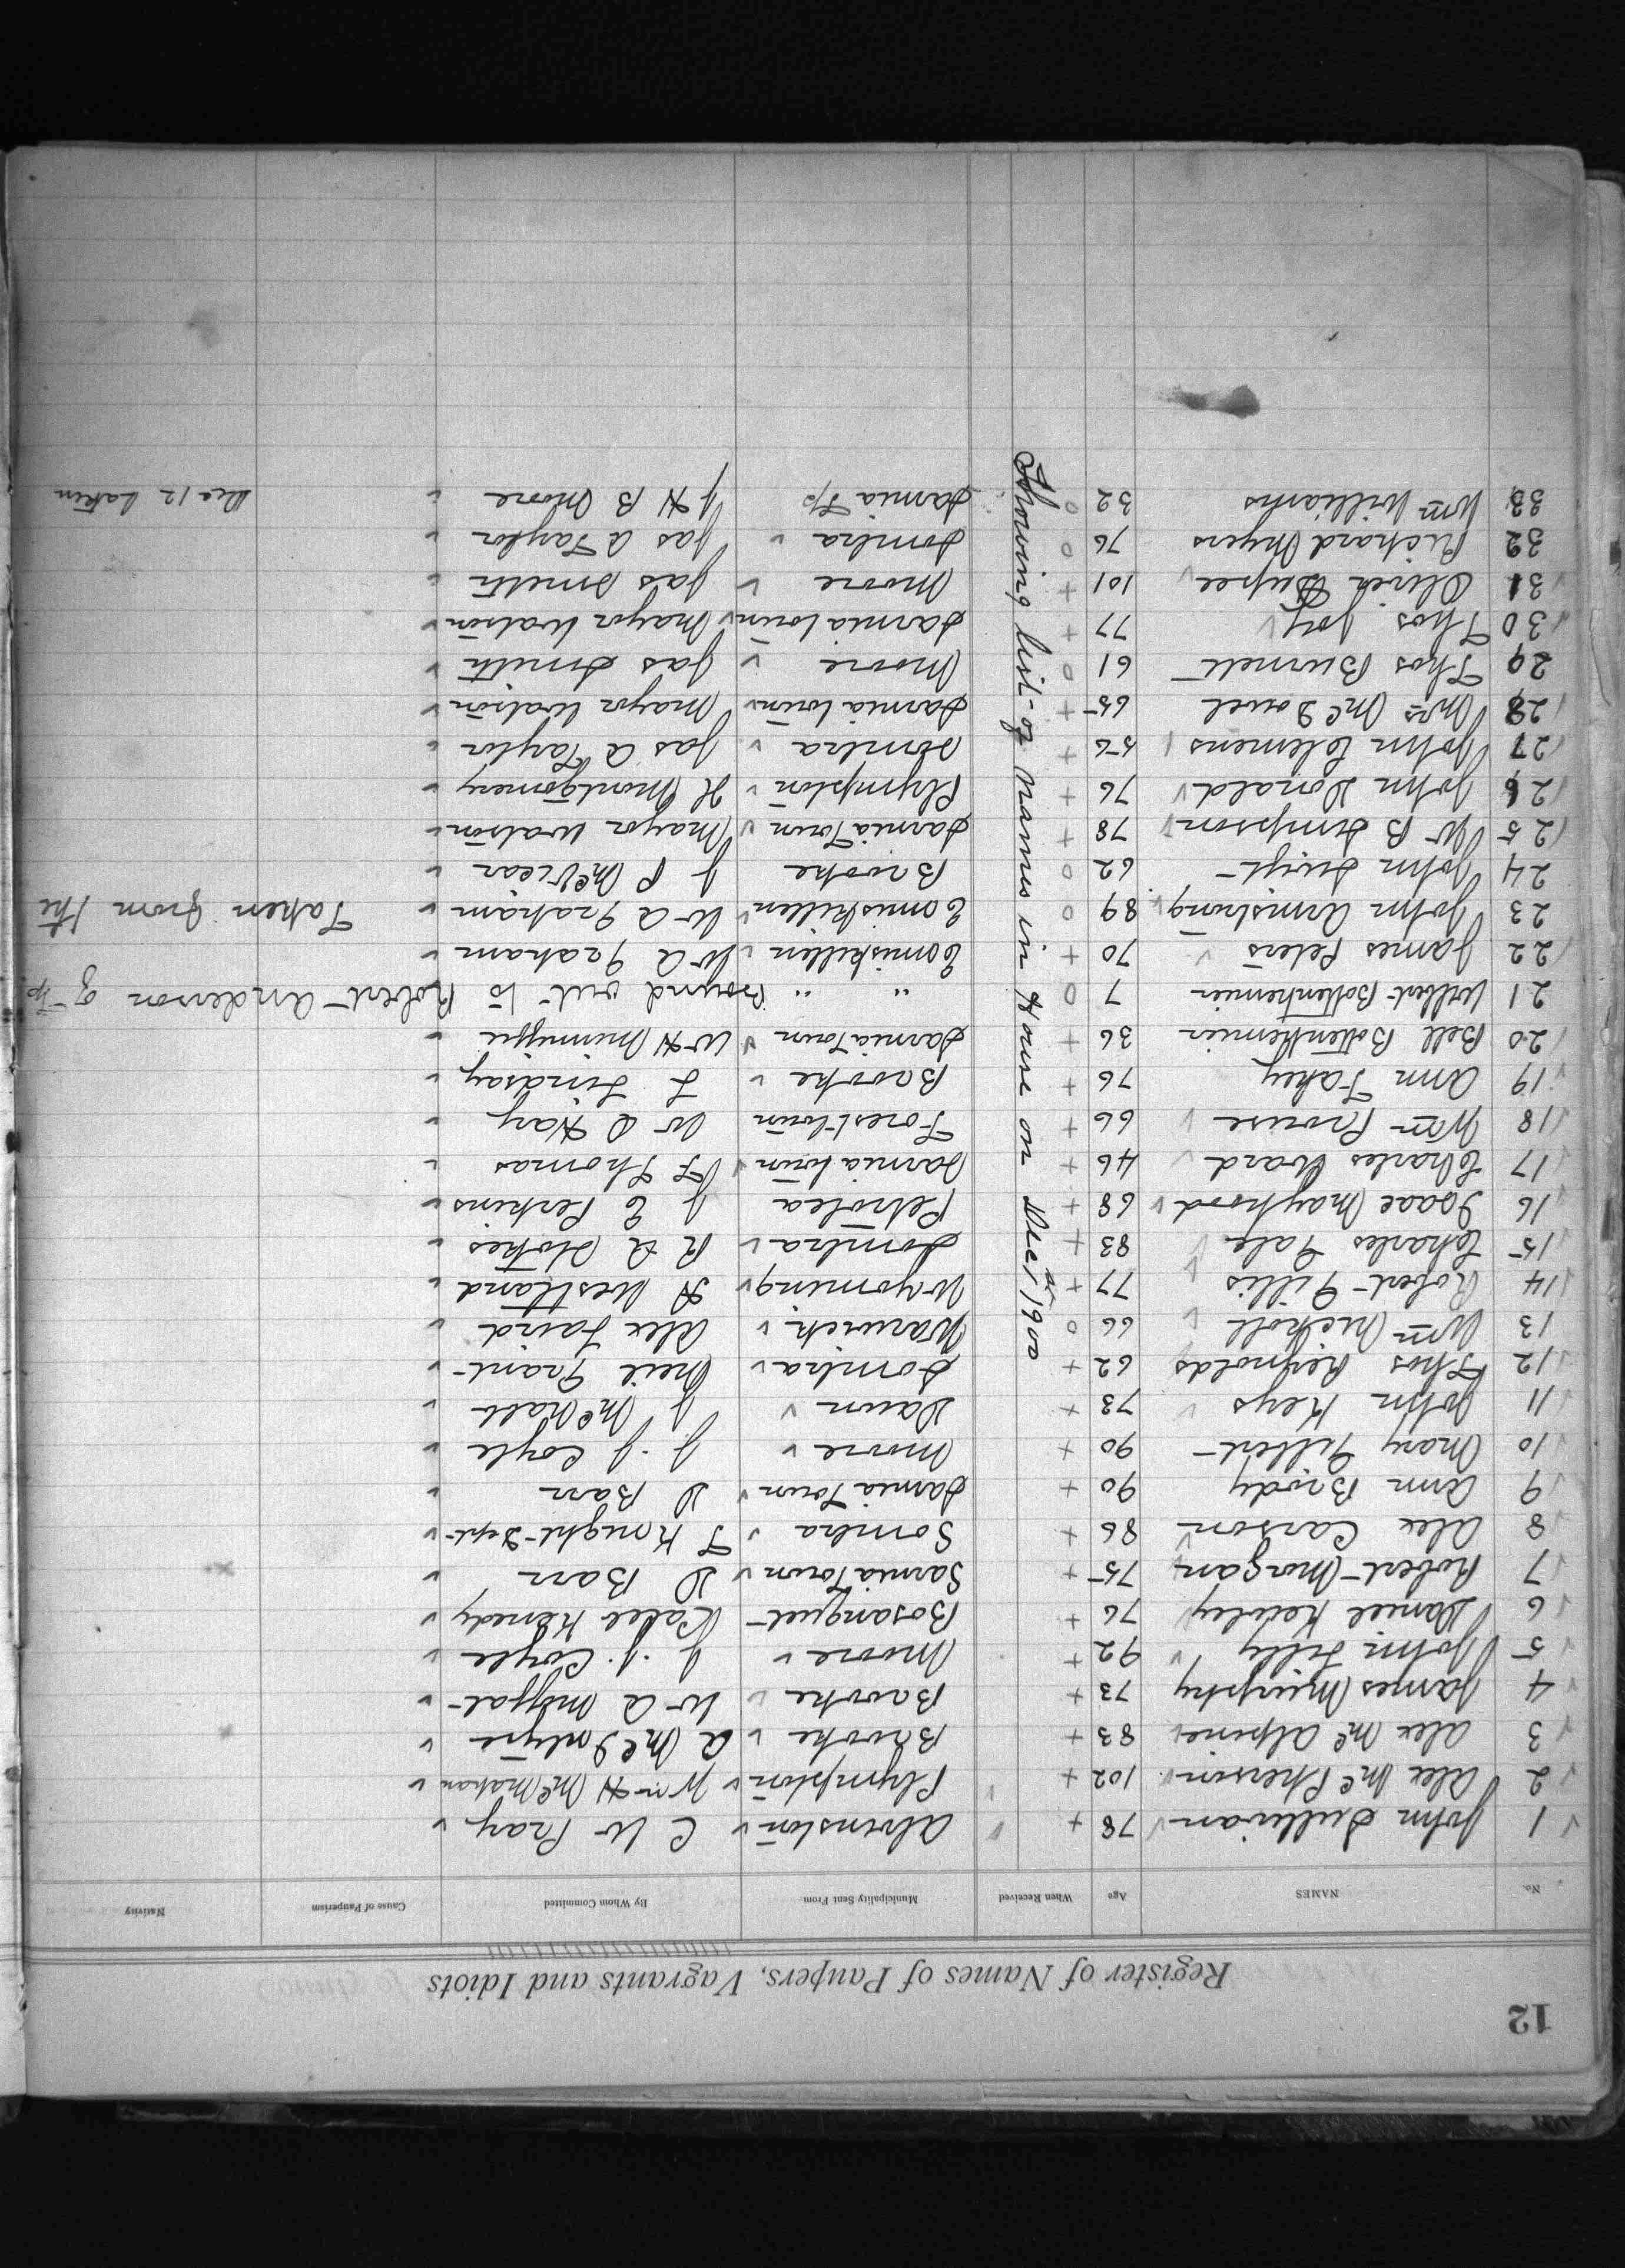 12
Register of Names of Paupers, Vagrants and Idiots
No. NAMES Age When Received Municipality Sent From By Whom Committed Cause of Pauperism Nativity
1 John Sullivan 78 + Alvinston C W Pray
2 Alex McPherson 102 + Plympton Wm H McMahan
3 Alex McAlpine 83 + Brooke A McIntyre
4 James Murphy 73 + Brooke W A Moffat
5 John Lilly 92 + Moore J. J. Coyle
6 Daniel Kewley 76 + Bosanquet Kaleb Kenedy
7 Robert Morgan 75 + Sarnia Town D Barr
8 Alex Carson 86 + Sombra T Knight
9 Ann Brody 90 + Sarnia Town D Barr
10 Mary Gilbert 90 + Moore J. J. Coyle
11 John Keys 73 + Dawn J McNall
12 Thos Reynolds 62 + Sombra Neil Grant
13 Wm Nicholl 66 o Warwick Alex Laird
14 Robert Gillis 77 + Wyoming H Westland
15 Charles Gale 83 + Sombra R A Stokes
16 Isaac Mayhood 68 + Petrolea J E Perkins
17 Charles Ward 46 + Sarnia Town J F Thomas
18 Wm Prouse 66 + Forest Town W D Hay
19 Ann Fahey 76 + Brooke L Lindsay
20 Bell Bottenhemier 36 + Sarnia Town W H
21 Wilbert Bottenhemier 7 o " " Bound out to Robert Anderson of Tp
22 James Peters 70 + Enniskillen W A Graham
23 John Armstrong 89 o Enniskillen W A Graham Taken from the
24 John Swift 62 o Brooke J P McVicar
25 W B Simpson 78 + Sarnia Town Mayor Watson
26 John Donald 76 + Plympton H Montgomery
27 John Clemens 56 + Sombra Jas A Taylor
28 Mrs McDowel 65 + Sarnia Town Mayor Watson
29 Thos Burnett 61 o Moore Jas Smith
30 Thos Joy 77 + Sarnia Town Mayor Watson
31 Oliver Dupee 101 + Moore Jas Smith
32 Richard Myers 76 o Sombra Jas A Taylor
33 Wm Williams 32 o Sarnia Tp J H B Moore Dec 12 taken
Showing list of names in House on Dec 1st 1900